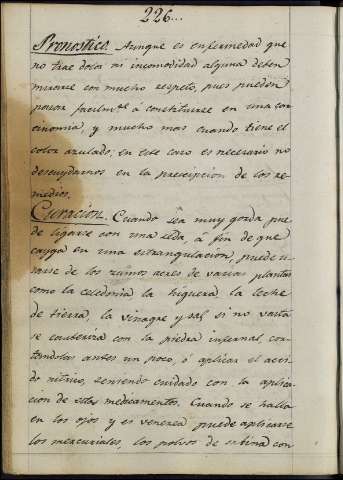 226...
Pronostico. Aunque es enfermedad que
no trae dolor ni incomodidad alguna deben
mirarse con mucho respeto, pues pueden
pasar facilmte á constituirse en una car
cinomia, y mucho mas cuando tiene el
color azulado; en este caso es necesario no
descuydarnos en la prescripcion de los re-
medios.
Curacion. Cuando séa muy gorda pue
de ligarse con una seda, á fin de que
cayga en una estrangulacion, puede u-
sarse de los zumos acres de varias plantas
como la celedonia la higuera, la leche
de tierra, la vinagre y sal si no vasta
se cauteriza con la piedra infernal, cor-
tandolas antes un poco, ó aplicar el aci-
do nitrico, teniendo cuidado con la aplica-
cion de estos medicamentos. Cuando se halla
en los ojos y es venerea puede aplicarse
los mercuriales, los polvos de sabina con